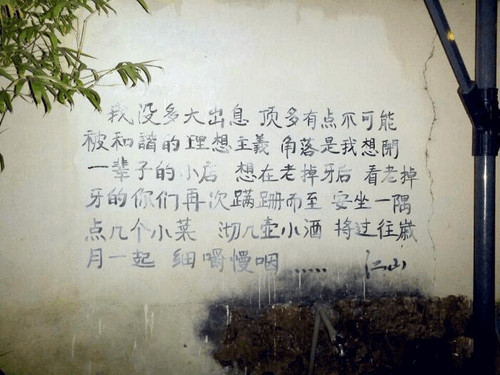 我没多大出息 顶多有点不可能
被和谐的理想主義 角落是我想開
一辈子的小店 想在老掉牙后 看老掉
牙的你们再次蹒跚而至 安坐一隅
点几个小菜 沏几壶小酒 将过往歲
月一起 细嚼慢咽……  江山